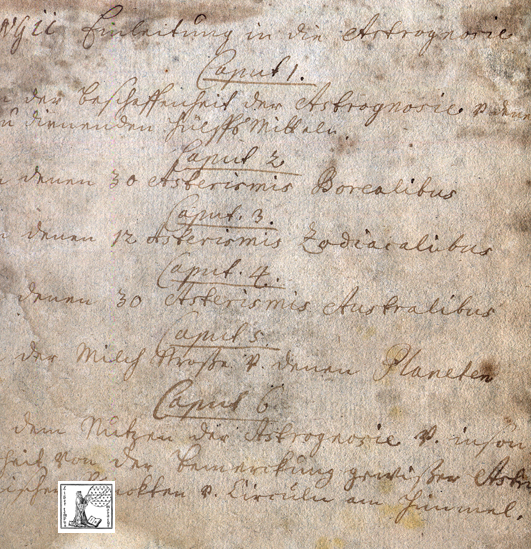 Einleitung in die Astrognosie
Caput 1.
der beschaffenheit der Astrognosie v.
dienenden hülffs Mitteln.
Caput 2
denen 30 Asterismis Borealibus
Caput. 3.
denen 12 Asterismis Zodiacalibus
Caput. 4.
denen 30 Asterismis Australibus
Caput 5.
der Milch Straße v. denen Planeten
Caput 6.
dem Nutzen der Astrognosie v. inson
heit von der bemerckung gewißer Astro
v. Circuln am Himmel.